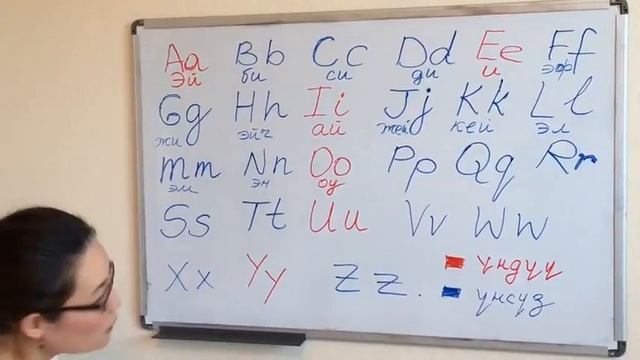 Aa Bb Cc Dd Ee Ff
эй би си ди и эф
Gg Hh Ii Jj Kk Ll
жи эйч ай жей кей эл
Mm Nn Oo Pp Qq Rr
эм эн оу
Ss Tt Uu Vv Ww
Xx Yy Zz. үндүү
үнсүз